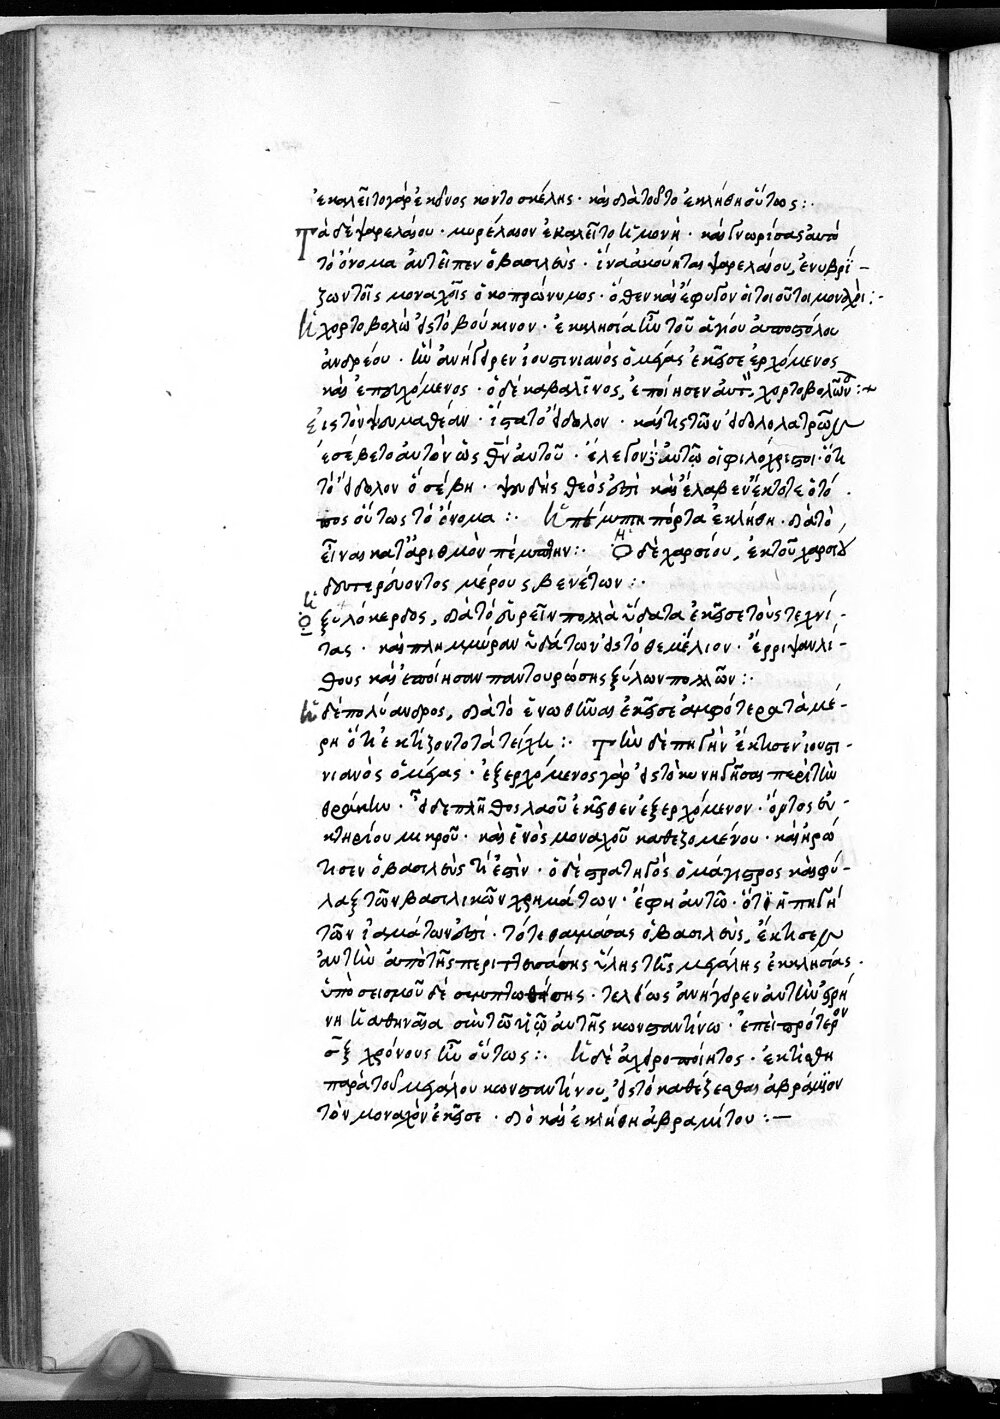 ἐκαλεῖτο γὰρ ἐκεῖνος κοντοσκέλης · καὶ διὰ τοῦτο ἐκλήθη οὕτως :·
Τὰ δὲ ψαρελαίου · μυρέλαιον ἐκαλεῖτο ἡ μονή · καὶ γνωρίσας αὐτὸ
τὸ ὄνομα ἀντεῖπεν ὁ βασιλεὺς · ἵνα ἀκούηται ψαρελαίου, ἐνυβρί-
ζων τοῖς μοναχοῖς ὁ κοπρώνυμος · ὅθεν καὶ ἔφυγον οἱ τοιοῦτοι μοναχοὶ :·
ἡ χορτοβολὼ εἰς τὸ βούκινον · ἐκκλησία ἦν τοῦ ἁγίου ἀποστόλου
ἀνδρέου · ἣν ἀνήγειρεν ἰουστινιανὸς ὁ μέγας ἐκεῖσε ἐρχόμενος
καὶ ἐπευχόμενος · ὁ δὲ καβαλῖνος, ἐποίησεν αὐτὴν χορτοβολῶνα :+
Εἰς τὸν ψωμαθέαν · ἵστατο εἴδωλον · καί τις τῶν εἰδωλολατρῶν
ἐσέβετο αὐτὸν ὡς θν αὐτοῦ · ἔλεγον αὐτῷ οἱ φιλόχριστοι · ὅτι
τὸ εἴδωλον ὃ σέβῃ · ψευδὴς θεός ἐστι καὶ ἔλαβεν ἔκτοτε ὁ τό-
πος οὕτως τὸ ὄνομα :· ἡ πέμπτη πόρτα ἐκλήθη · διὰ τὸ
εἶναι κατ' ἀριθμὸν πέμπτην :· Ὁ δὲ χαρσίου, ἐκ τοῦ χαρσίου
δευτερεύοντος μέρους βενέτων :·
ὁ ξυλόκερκος, διὰ τὸ εὑρεῖν πολλὰ ὕδατα ἐκεῖσε τοὺς τεχνί-
τας · καὶ πλημμύραν ὑδάτων εἰς τὸ θεμέλιον · ἔρριψαν λί-
θους καὶ ἐποίησαν παντουρώσης ξύλων πολλῶν :·
ἡ δὲ πολύανδρος, διὰ τὸ ἑνωθῆναι ἐκεῖσε ἀμφότερα τὰ μέ-
ρη ὅτι ἐκτίζοντο τὰ τείχη :· Τὴν δὲ πηγὴν ἔκτισεν ἰουστι-
νιανὸς ὁ μέγας · ἐξερχόμενος γὰρ εἰς τὸ κυνηγῆσαι περὶ τὴν
θράκην · εἶδε πλῆθος λαοῦ ἐκεῖθεν ἐξερχόμενον · ὄρτος εὐ-
κτηρίου μικροῦ · καὶ ἑνὸς μοναχοῦ καθεζομένου · καὶ ἠρώ-
τησεν ὁ βασιλεὺς τί ἐστὶν · ὁ δὲ στρατηγὸς ὁ μάγιστρος καὶ φύ-
λαξ τῶν βασιλικῶν χρημάτων · ἔφη αὐτῷ · ὅτι ἡ πηγὴ
τῶν ἰαμάτων ἐστί · τότε θαυμάσας ὁ βασιλεὺς, ἔκτισεν
αὐτὴν ἀπὸ τῆς περιττευσάσης ὕλης τῆς μεγάλης ἐκκλησίας ·
ὑπὸ σεισμοῦ δὲ συμπτωθείσης · τελείως ἀνήγειρεν αὐτὴν εἰρή-
νη ἡ ἀθηναία σὺν τῷ υἱῷ αὐτῆς κωνσταντίνῳ · ἐπεὶ πρότερον
σξ χρόνους ἦν οὕτως :· ἡ δὲ ἀχειροποίητος · ἐκτίσθη
παρὰ τοῦ μεγάλου κωνσταντίνου, εἰς τὸ καθέζεσθαι ἀβράμιον
τὸν μοναχὸν ἐκεῖσε · διὸ καὶ ἐκλήθη ἀβραμίτου :—